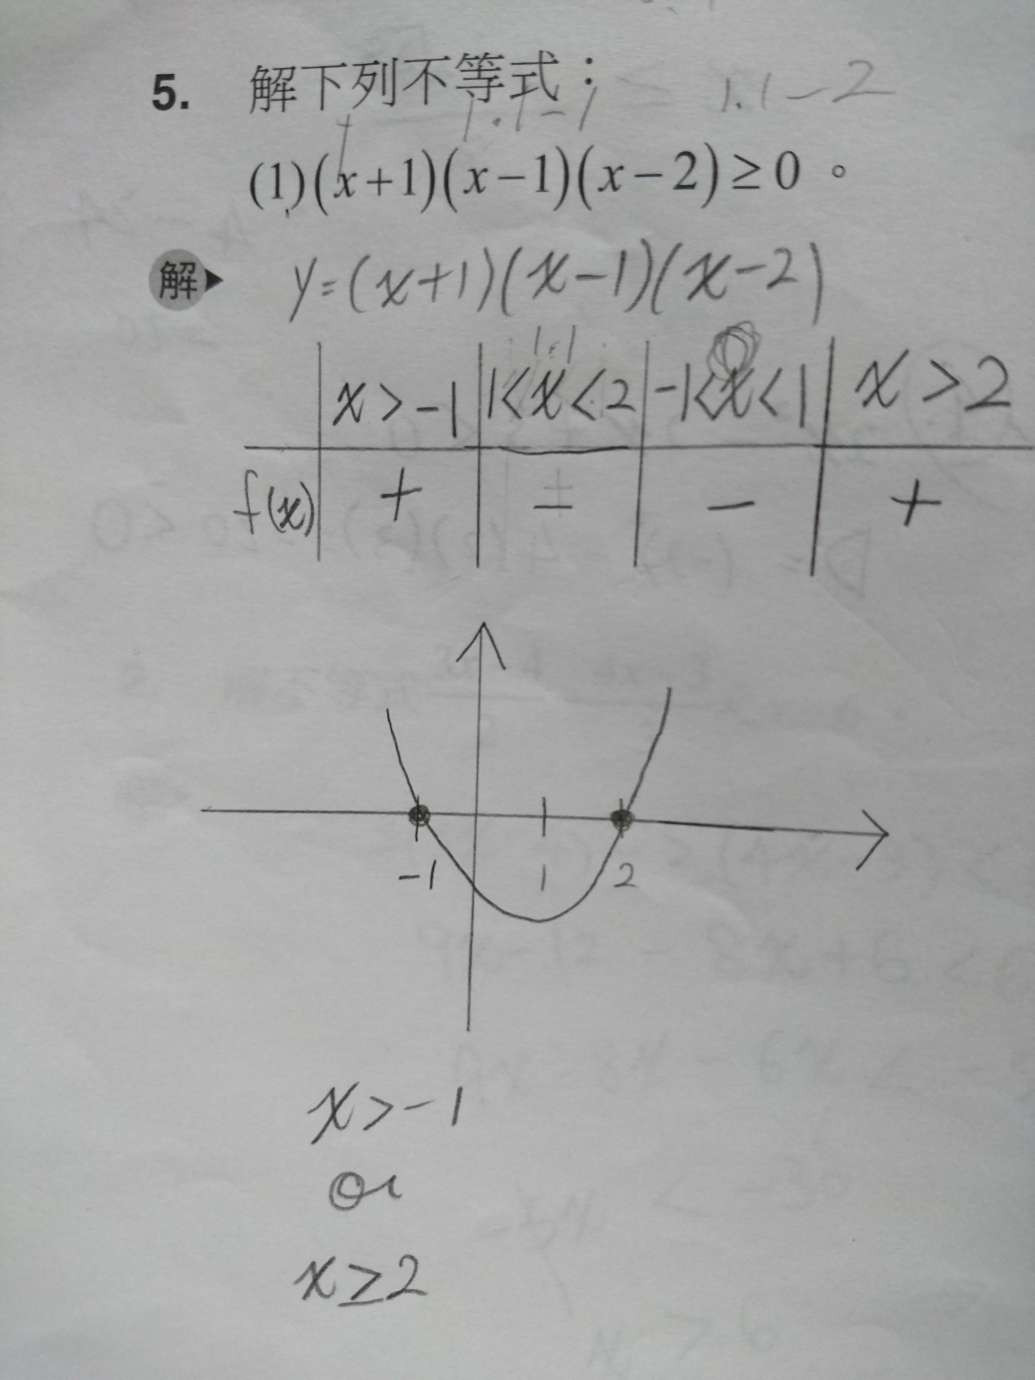 5. 解下列不等式：
1.1-1 = 1.1-2
(1)(x+1)(x-1)(x-2)≥0。
解 y=(x+1)(x-1)(x-2)
1.1
x>-1 1<x<2 -1<x<1 x>2
f(x) + - - +
-1 1 2
x>-1
or
x≥2